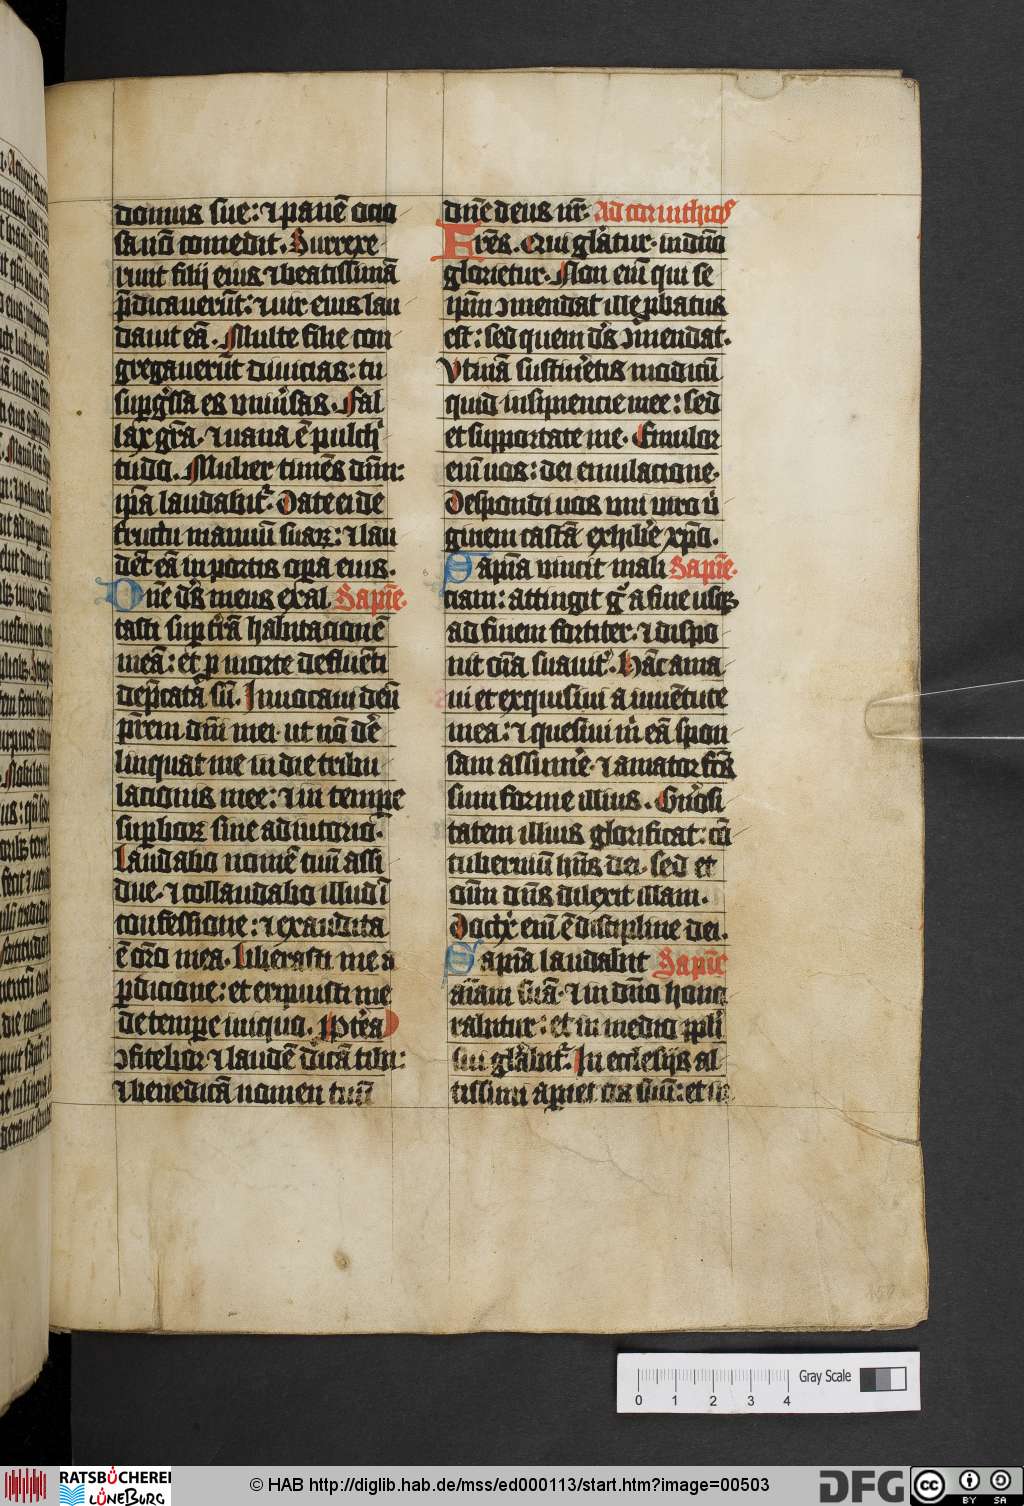 domus sue: ⁊ panē ocio
sa nō comedit. Surrexe
runt filij eius ⁊ beatissimā
p̄dicauerūt: ⁊ uir eius lau
dauit eā. Multe filie con
gregauerūt diuicias: tu
suꝑg̾ssa es vniu̾sas. Fal
lax gr̄a. ⁊ uana ē pulch̾i
tudo. Mulier timēs dn̄m:
ip̄a laudabit᷑. Date ei de
fructu manuū suaꝝ: ⁊ lau
dēt eā in portis oꝑa eius.
Dn̄e ds̄ meus exal Sapiē.
tasti suꝑ t̄rā habitacionē
meā: et ꝓ morte defluēti
dep̄catā sū. Inuocaui deū
pr̄em dn̄i mei. ut nō de̾
linquat me in die tribu
lacionis mee: ⁊ in tempe
suꝑboꝝ sine adiutorio.
Laudabo nomē tuū assi
due. ⁊ collaudabo illud ī
confessione: ⁊ exaudita
ē or̄o mea. Liberasti me a
ꝑdicione: et eripuisti me
de tempe iniquo. Ꝓpt̾ea
ꝯfitebor ⁊ laudē dicā tibi:
⁊ benedicā nomen tuū
dn̄e deus nr̄. Ad corinthios
Frēs. Qui gl̄atur. in dn̄o
glorietur. Non enī qui se
ip̄m ꝯmendat ille ꝓbatus
est: sed quem ds̄ ꝯmendat.
Vtinā sustin̾etis modicū
quid insipiencie mee: sed
et supportate me. Emulor
enī uos: dei emulacione.
Despondi uos uni uiro u̾i
ginem castā exhibe̾ xp̄o.
Sapīa vincit mali Sapiē.
ciam: attingit g̾ a fine usqꝫ
ad finem fortiter. ⁊ dispo
nit oīa suauit᷑. Hāc ama
ui et exquisiui a iuuētute
mea: ⁊ quesiui m̾ eā spon
sam assume̾. ⁊ amator fc̄s
sum forme illius. Gn̾osi
tatem illius glorificat: cō
tuberniū hn̄s dei. sed et
oīm dn̄s dilexit illam.
Doct᷑x enī ē discipline dei.
Sapīa laudabit Sapiē
aīam suā. ⁊ in dn̄o hono
rabitur: et in medio ppl̄i
sui gl̄abit᷑. In ecclesijs al
tissimi aꝑiet os suū: et in
0 1 2 3 4 Gray Scale
RATSBÜCHEREI
LÜNEBURG
© HAB http://diglib.hab.de/mss/ed000113/start.htm?image=00503
DFG
cc BY SA